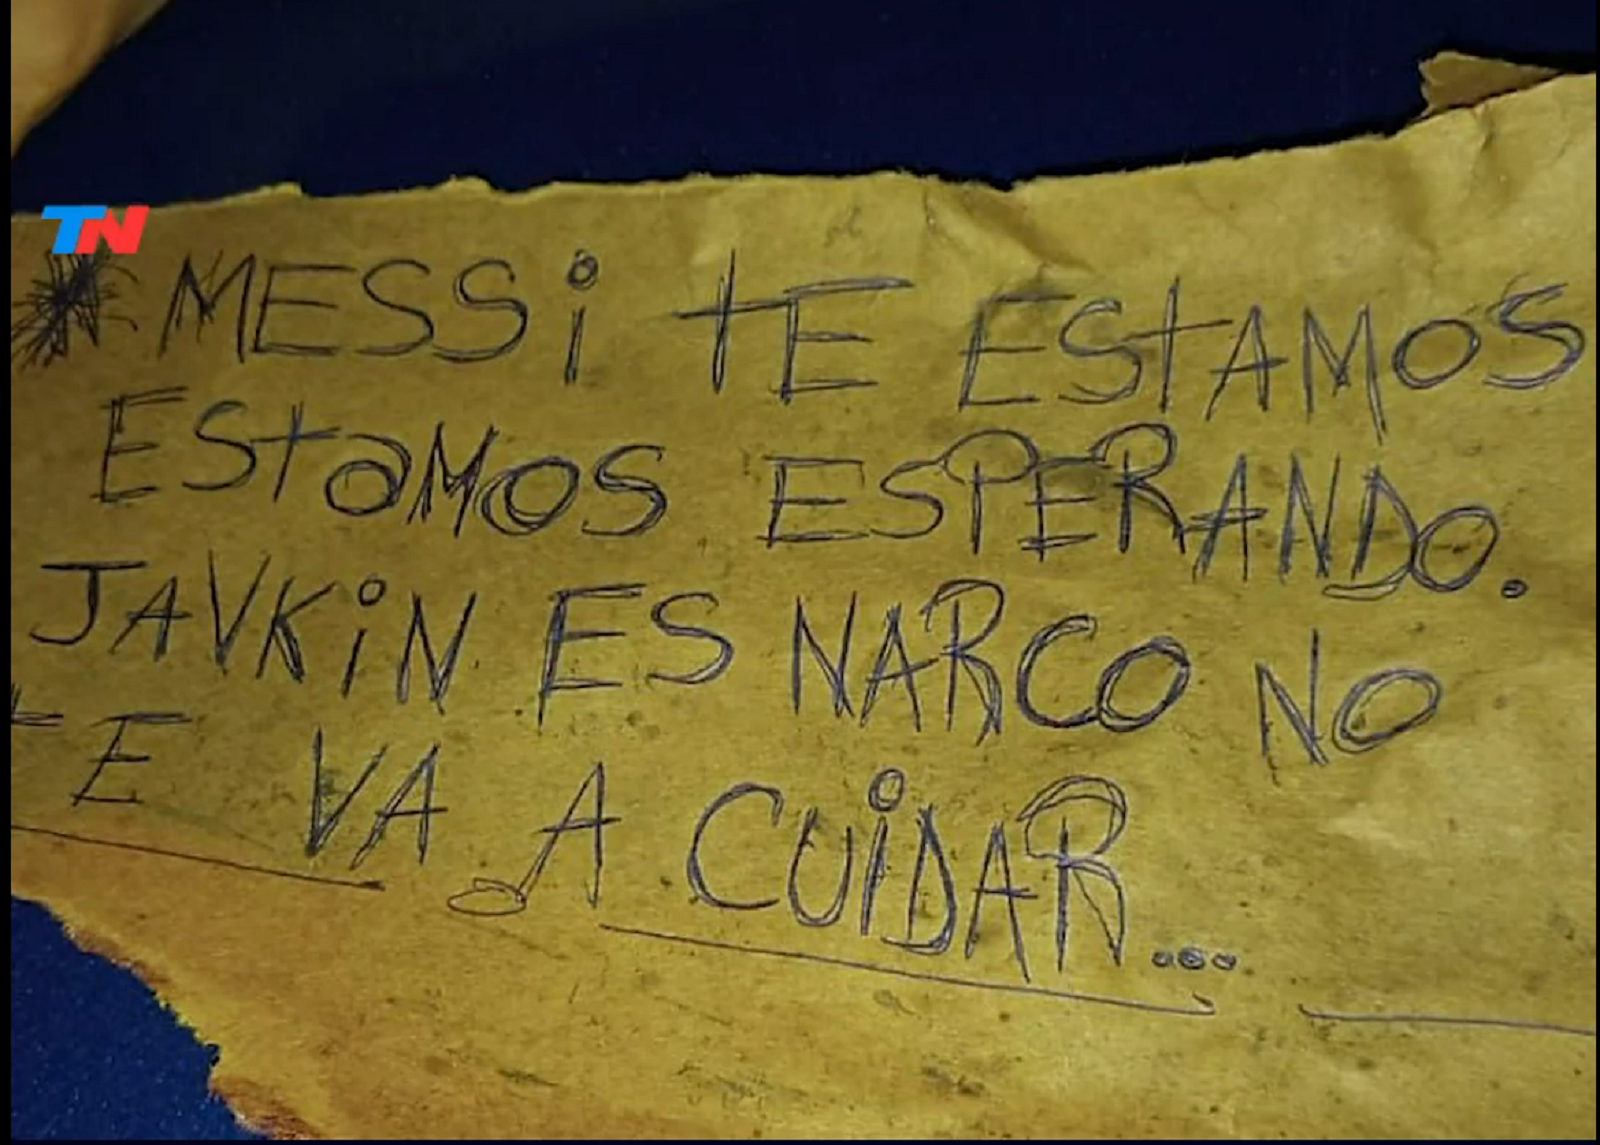 TN
* MESSi tE EStAMOS
EStaMOS ESPERANDO.
JAVKiN ES NARCO NO
tE VA A CUiDAR...